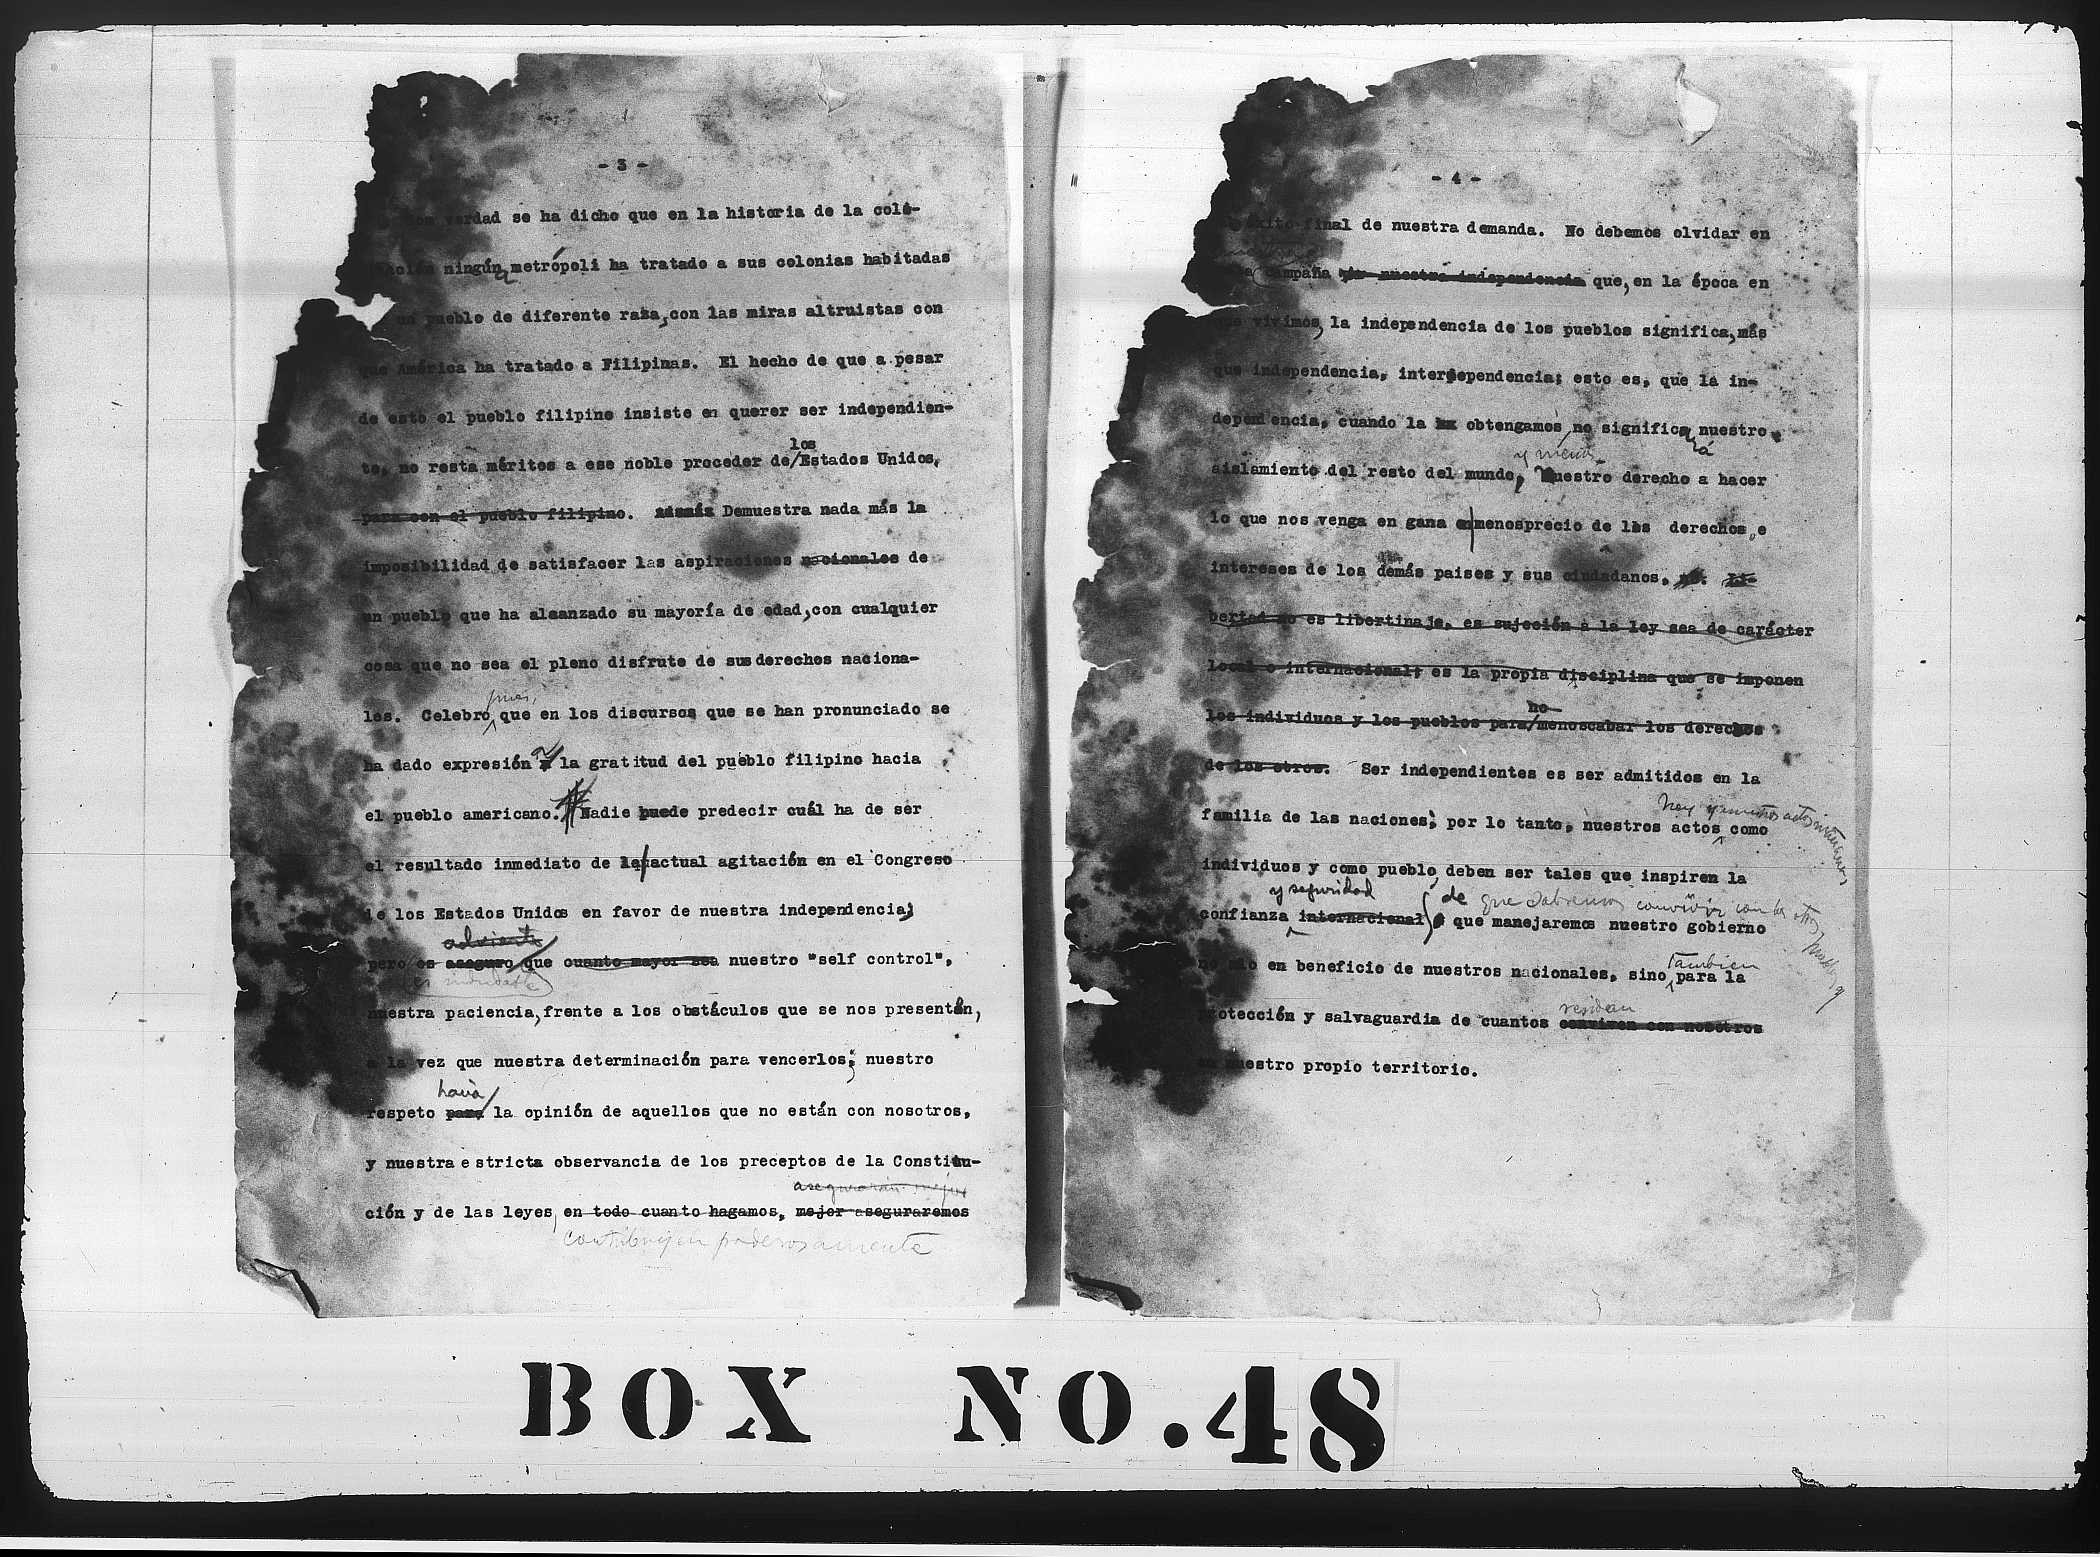 - 3 -
verdad se ha dicho que en la historia de la colo-
ningún metrópoli ha tratado a sus colonias habitadas
un pueblo de diferente raza, con las miras altruistas con
que América ha tratado a Filipinas. El hecho de que a pesar
de esto el pueblo filipino insiste en querer ser independien-
los
te, no resta méritos a ese noble proceder de/Estados Unidos,
para con el pueblo filipino. Demuestra nada más la
imposibilidad de satisfacer las aspiraciones nacionales de
un pueblo que ha alcanzado su mayoría de edad, con cualquier
cosa que no sea el pleno disfrute de sus derechos naciona-
pues,
les. Celebro que en los discursos que se han pronunciado se
a
ha dado expresión la gratitud del pueblo filipino hacia
el pueblo americano. Nadie puede predecir cuál ha de ser
el resultado inmediato de la actual agitación en el Congreso
de los Estados Unidos en favor de nuestra independencia;
advierto
pero es aseguro que cuanto mayor sea nuestro "self control",
es indudable
nuestra paciencia, frente a los obstáculos que se nos presentan,
a la vez que nuestra determinación para vencerlos; nuestro
hacia
respeto para la opinión de aquellos que no están con nosotros,
y nuestra estricta observancia de los preceptos de la Constitu-
asegurarán mejor
ción y de las leyes, en todo cuanto hagamos, mejor aseguraremos
contribuyen poderosamente
- 4 -
éxito final de nuestra demanda. No debemos olvidar en
campaña nuestra independencia que, en la época en
que vivimos, la independencia de los pueblos significa, más
que independencia, interdependencia; esto es, que la in-
dependencia, cuando la obtengamos, no significará nuestro
y menos
aislamiento del resto del mundo, nuestro derecho a hacer
lo que nos venga en gana en menosprecio de los derechos e
intereses de los demás paises y sus ciudadanos. Li-
bertad no es libertinaje, es sujeción a la ley sea de carácter
local o internacional; es la propia disciplina que se imponen
no
los individuos y los pueblos para/menoscabar los derechos
de los otros. Ser independientes es ser admitidos en la
familia de las naciones; por lo tanto, nuestros actos como
individuos y como pueblo, deben ser tales que inspiren la
y seguridad de que sabremos convivir con los otros pueblos y
confianza internacional que manejaremos nuestro gobierno
también
no sólo en beneficio de nuestros nacionales, sino para la
residan
protección y salvaguardia de cuantos conviven con nosotros
en nuestro propio territorio.
BOX NO. 48